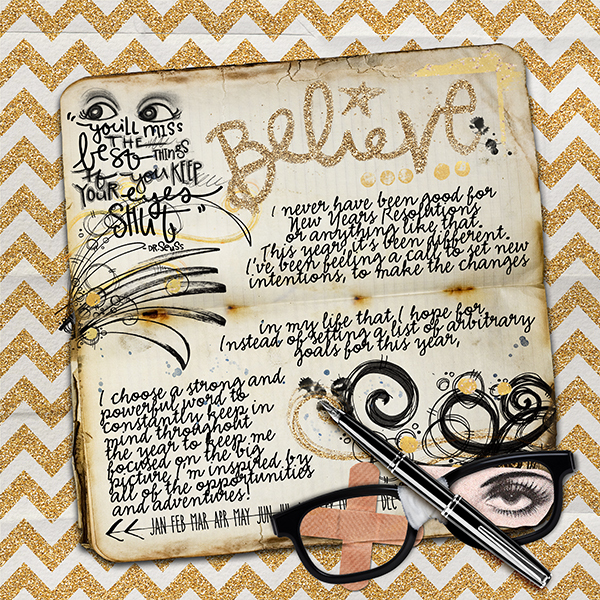 "you'll miss
the
best things
if you keep
your eyes
shut"
- Dr. Seuss
Believe
I never have been good for
New Years Resolutions
or anything like that.
This year, it's been different.
I've been feeling a call to set new
intentions, to make the changes
in my life that I hope for.
Instead of setting a list of arbitrary
goals for this year,
I choose a strong and
powerful word to
constantly keep in
mind throughout
the year to keep me
focused on the big
picture. I'm inspired by
all of the opportunities
and adventures!
JAN FEB MAR APR MAY JUN DEC